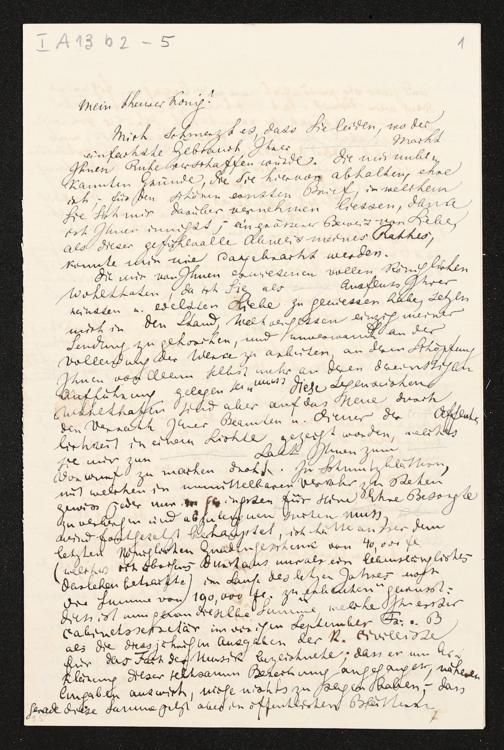 I A 13 b 2 - 5
1
Mein theurer König!
Mich schmerzt es, dass Sie leiden, wo der
einfachste Gebrauch Ihrer Macht
Ihnen Ruhe verschaffen würde. Die mir unbe-
kannten Gründe, die Sie hiervon abhalten, ehre
ich; für den schönen ernsten Brief, in welchem
Sie sich mir darüber vernehmen liessen, danke
ich Ihnen innigst; ein grösserer Beweis von Liebe,
als dieser gefühlvolle Abweis meines Rathes,
konnte mir nie dargebracht werden.
Die mir von Ihnen erwiesenen vollen königlichen
Wohlthaten, da ich Sie als Ausfluss Ihrer
reinsten u. edelsten Liebe zu geniessen habe, setzen
mich in den Stand, weltvergessen einzig meiner
Sendung zu gehorchen, und an der
Vollendung der Werke zu arbeiten, an deren Schöpfung
Ihnen vor Allem selbst mehr an deren
Aufführung gelegen sein muss. Diese segensreichen
Wohlthaten sind aber auf das Neue durch
den Verrath Ihrer Beamten u. Diener der Oeffent-
lichkeit in einem Lichte gezeigt worden, welches
sie mir zum Last Ihnen zum
Vorwurf zu machen droht. In Schmutzblättern,
mit welchen in unmittelbarem Verkehr zu stehen
gewiss jeder nur im geringsten für seine Ehre Besorgte
zu verbergen und abzuleugnen suchen muss,
wird fortgesetzt behauptet, ich hätte ausser dem
letzten königlichen Gnadengeschenk von 40,000 fl
(welches ich überdies durchaus nur als ein lebenslängliches
Darlehen betrachte) im Laufe des letzten Jahres noch
die Summe von 190,000 fl. zu erhalten gewusst:
diess ist nun genau dieselbe Summe, welche Ihr erster
Cabinetssecretär im vorigen September Fr. v. B
als die diessjährigen Ausgaben der K. Civilliste
für das Fach der Musik bezeichnete; dass er um Er-
klärung dieser seltsamen Berechnung angegangen, näheren
Angaben auswich, möge nichts zu sagen haben; - dass
gerade diese Summe jetzt aber in öffentlichen Blättern